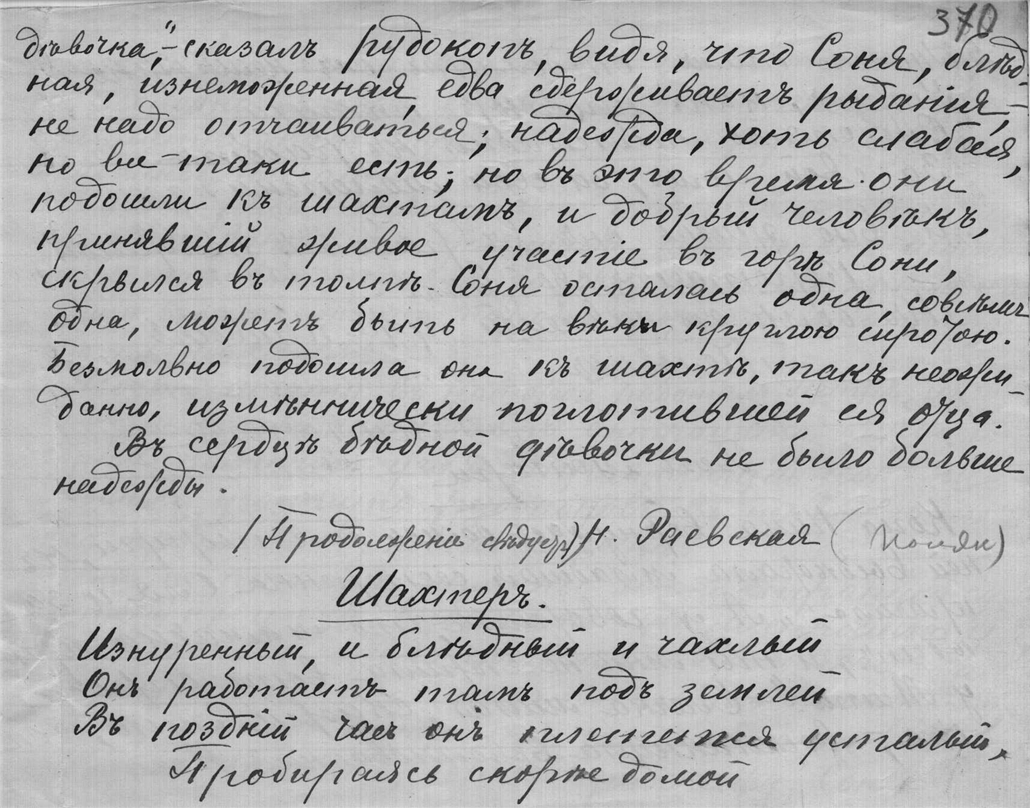 370
дѣвочка,"-сказалъ рудокопъ, видя, что Соня, блѣд-
ная, изнеможенная, едва сдерживаетъ рыданія,-
не надо отчаиваться; надежда, хоть слабая,
но все-таки есть; но въ это время они
подошли къ шахтамъ, и добрый человѣкъ,
принявшій живое участіе въ горѣ Сони,
скрылся въ толпѣ. Соня осталась одна, совсѣмъ
одна, можетъ быть на вѣки круглою сиротою.
Безмолвно подошла она къ шахтѣ, такъ неожи-
данно, измѣннически поглотившей ея отца.
Въ сердцѣ бѣдной дѣвочки не было больше
надежды.
(Продолженіе слѣдуетъ) Н. Раевская
Шахтеръ.
Изнуренный, и блѣдный и чахлый
Онъ работаетъ тамъ подъ землей
Въ поздній часъ онъ плетется усталый,
Пробираясь скорѣе домой